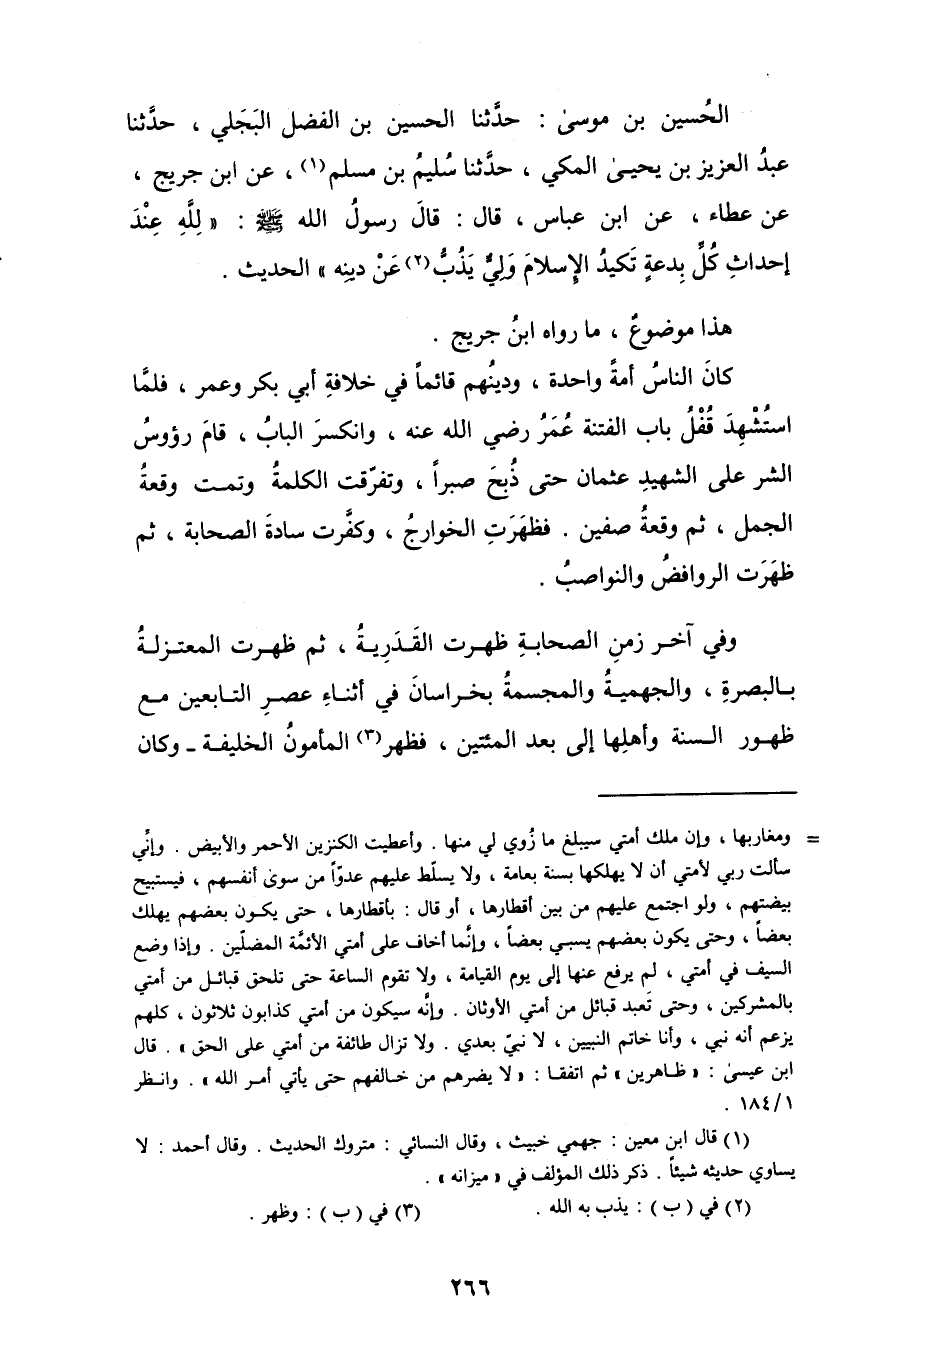 الحُسين بن موسىٰ : حدَّثنا الحسين بن الفضل البَجَلي ، حدَّثنا
عبدُ العزيز بن يحيىٰ المكي ، حدَّثنا سُليمُ بن مسلم(١) ، عن ابن جريج ،
عن عطاء ، عن ابن عباس ، قال : قالَ رسولُ الله ﷺ : « لِلَّهِ عِنْدَ
إحداثِ كُلِّ بِدعةٍ تَكيدُ الإِسلامَ وَلِيٌّ يَذُبُّ(٢) عَنْ دينِه » الحديث .
هذا موضوعٌ ، ما رواه ابنُ جريج .
كانَ الناسُ أمةً واحدة ، ودينُهم قائماً في خلافةِ أبي بكر وعمر ، فلمَّا
استُشْهِدَ قُفْلُ باب الفتنة عُمَرُ رضي الله عنه ، وانكسرَ البابُ ، قامَ رؤوسُ
الشر على الشهيدِ عثمان حتى ذُبِحَ صبراً ، وتفرّقت الكلمةُ وتمت وقعةُ
الجمل ، ثم وقعةُ صفين . فظهَرَتِ الخوارجُ ، وكفَّرت سادةَ الصحابة ، ثم
ظهَرَت الروافضُ والنواصبُ .
وفي آخر زمنِ الصحابةِ ظهرت القَدَرِيةُ ، ثم ظهرت المعتزلةُ
بالبصرةِ ، والجهميةُ والمجسمةُ بخراسانَ في أثناءِ عصرِ التابعين مع
ظهور السنة وأهلِها إلى بعد المئتين ، فظهر(٣) المأمونُ الخليفة ـ وكان
= ومغاربها ، وإن ملك أمتي سيبلغ ما زُوي لي منها . وأعطيت الكنزين الأحمر والأبيض . وإنِّي
سألت ربي لأمتي أن لا يهلكها بسنة بعامة ، ولا يسلّط عليهم عدوّاً من سوىٰ أنفسهم ، فيستبيح
بيضتهم ، ولو اجتمع عليهم من بين أقطارها ، أو قال : بأقطارها ، حتى يكون بعضهم يهلك
بعضاً ، وحتى يكون بعضهم يسبي بعضاً ، وإنَّما أخاف على أمتي الأئمَّة المضلّين . وإذا وضع
السيف في أمتي ، لم يرفع عنها إلى يوم القيامة ، ولا تقوم الساعة حتى تلحق قبائل من أمتي
بالمشركين ، وحتى تَعبد قبائل من أمتي الأوثان . وإنَّه سيكون من أمتي كذابون ثلاثون ، كلهم
يزعم أنه نبي ، وأنا خاتم النبيين ، لا نبيّ بعدي . ولا تزال طائفة من أمتي على الحق » . قال
ابن عيسىٰ : « ظاهرين » ثم اتفقا : « لا يضرهم من خالفهم حتى يأتي أمر الله » . وانظر
١/١٨٤ .
(١) قال ابن معين : جهمي خبيث ، وقال النسائي : متروك الحديث . وقال أحمد : لا
يساوي حديثه شيئاً . ذكر ذلك المؤلف في « ميزانه » .
(٢) في ( ب ) : يذب به الله . (٣) في ( ب ) : وظهر .
٢٦٦